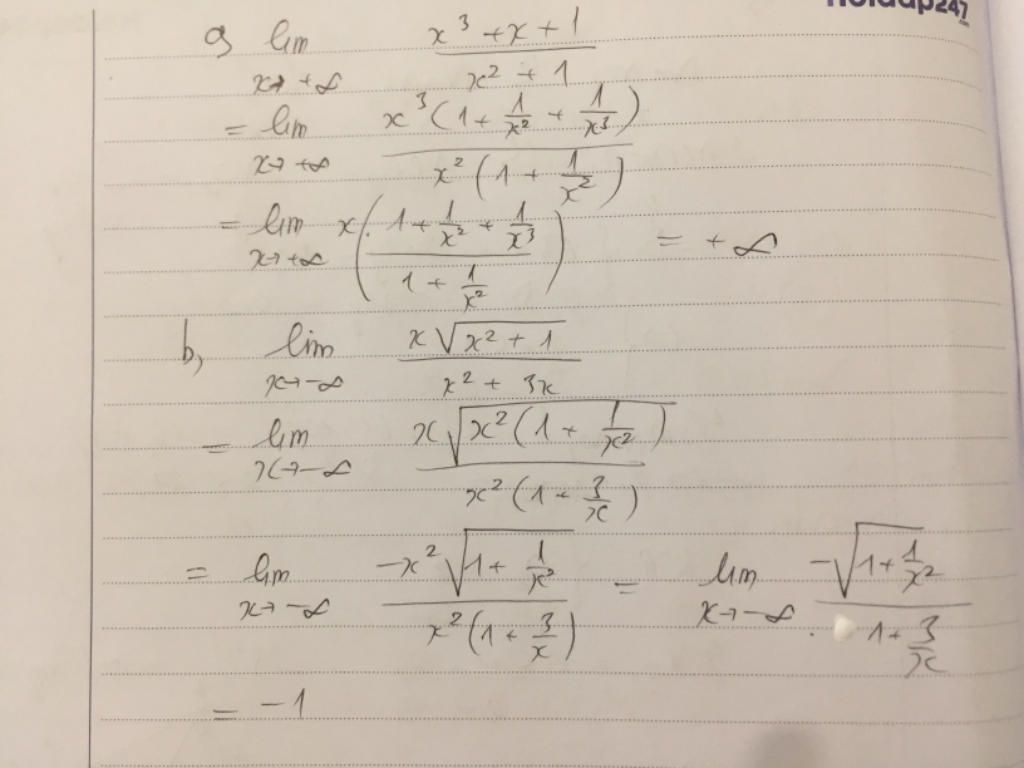 hoidap247
.com
a, lim x→+∞ (x³ + x + 1)/(x² + 1)
= lim x→+∞ x³(1 + 1/x² + 1/x³)/x²(1 + 1/x²)
= lim x→+∞ x.((1 + 1/x² + 1/x³)/(1 + 1/x²)) = +∞
b, lim x→-∞ x√(x² + 1)/(x² + 3x)
= lim x→-∞ x√(x²(1 + 1/x²))/x²(1 + 3/x)
= lim x→-∞ -x²√(1 + 1/x²)/x²(1 + 3/x) = lim x→-∞ -√(1 + 1/x²)/(1 + 3/x)
= -1